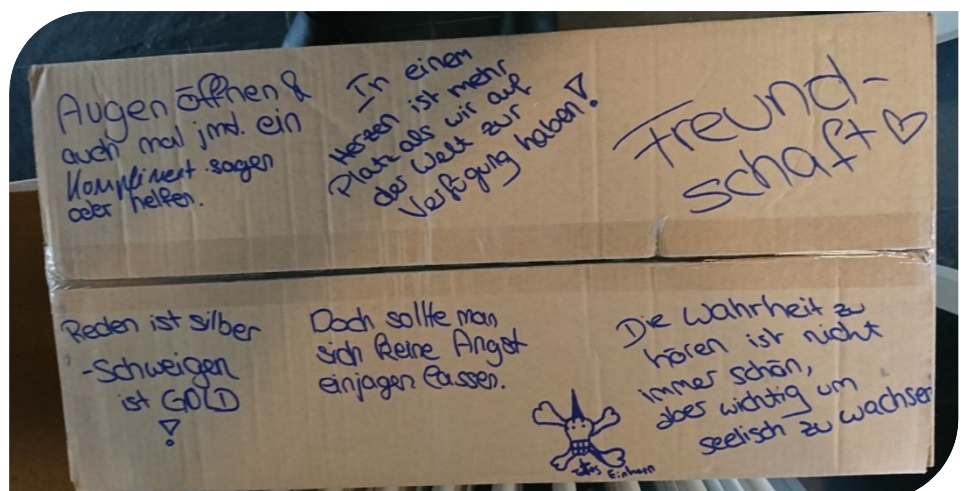 Augen öffnen &
auch mal jmd. ein
Kompliment sagen
oder helfen.
In einem
Herzen ist mehr
Platz als wir auf
der Welt zur
Verfügung haben!
Freund-
schaft ♡
Reden ist silber
-Schweigen
ist GOLD
!
Doch sollte man
sich keine Angst
einjagen lassen.
Einhorn
Die Wahrheit zu
hören ist nicht
immer schön,
aber wichtig um
seelisch zu wachsen